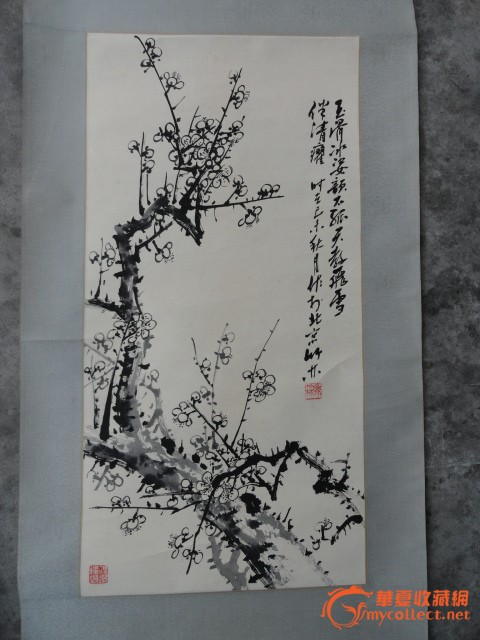 玉骨冰姿韵不孤天教飛雪
伴清癯 时在己未秋月作於北京
華夏收藏網
mycollect.net